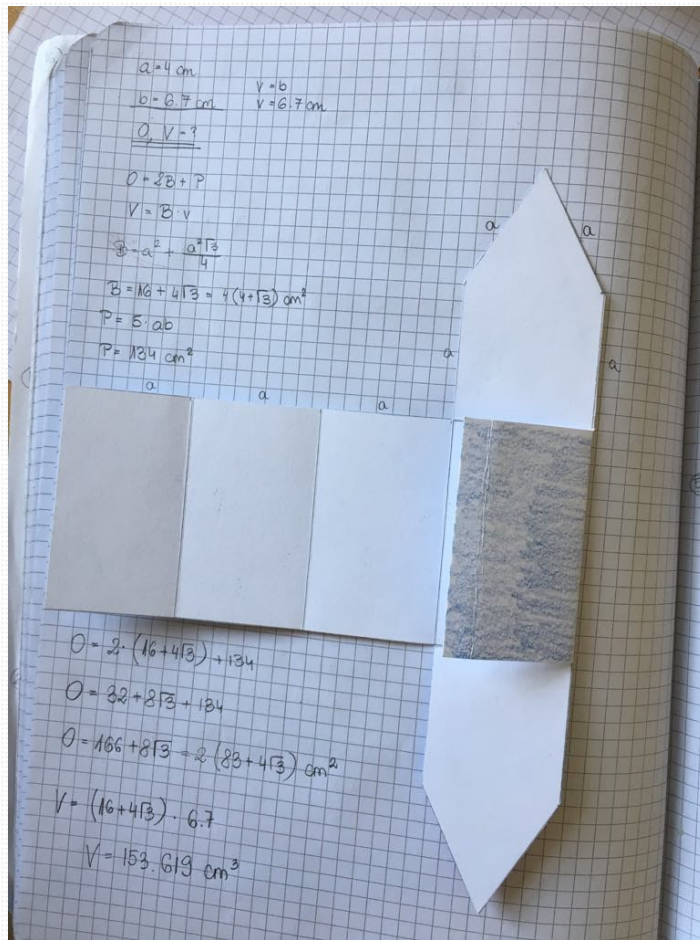 a = 4 cm
b = 6.7 cm
v = b
v = 6.7 cm
O, V = ?
O = 2B + P
V = B · v
B = a² + a²√3/4
B = 16 + 4√3 = 4(4+√3) cm²
P = 5 · ab
P = 134 cm²
a
a
a
a
a
a
a
O = 2 · (16+4√3) + 134
O = 32 + 8√3 + 134
O = 166 + 8√3 = 2 (83 + 4√3) cm²
V = (16+4√3) · 6.7
V = 153.619 cm³